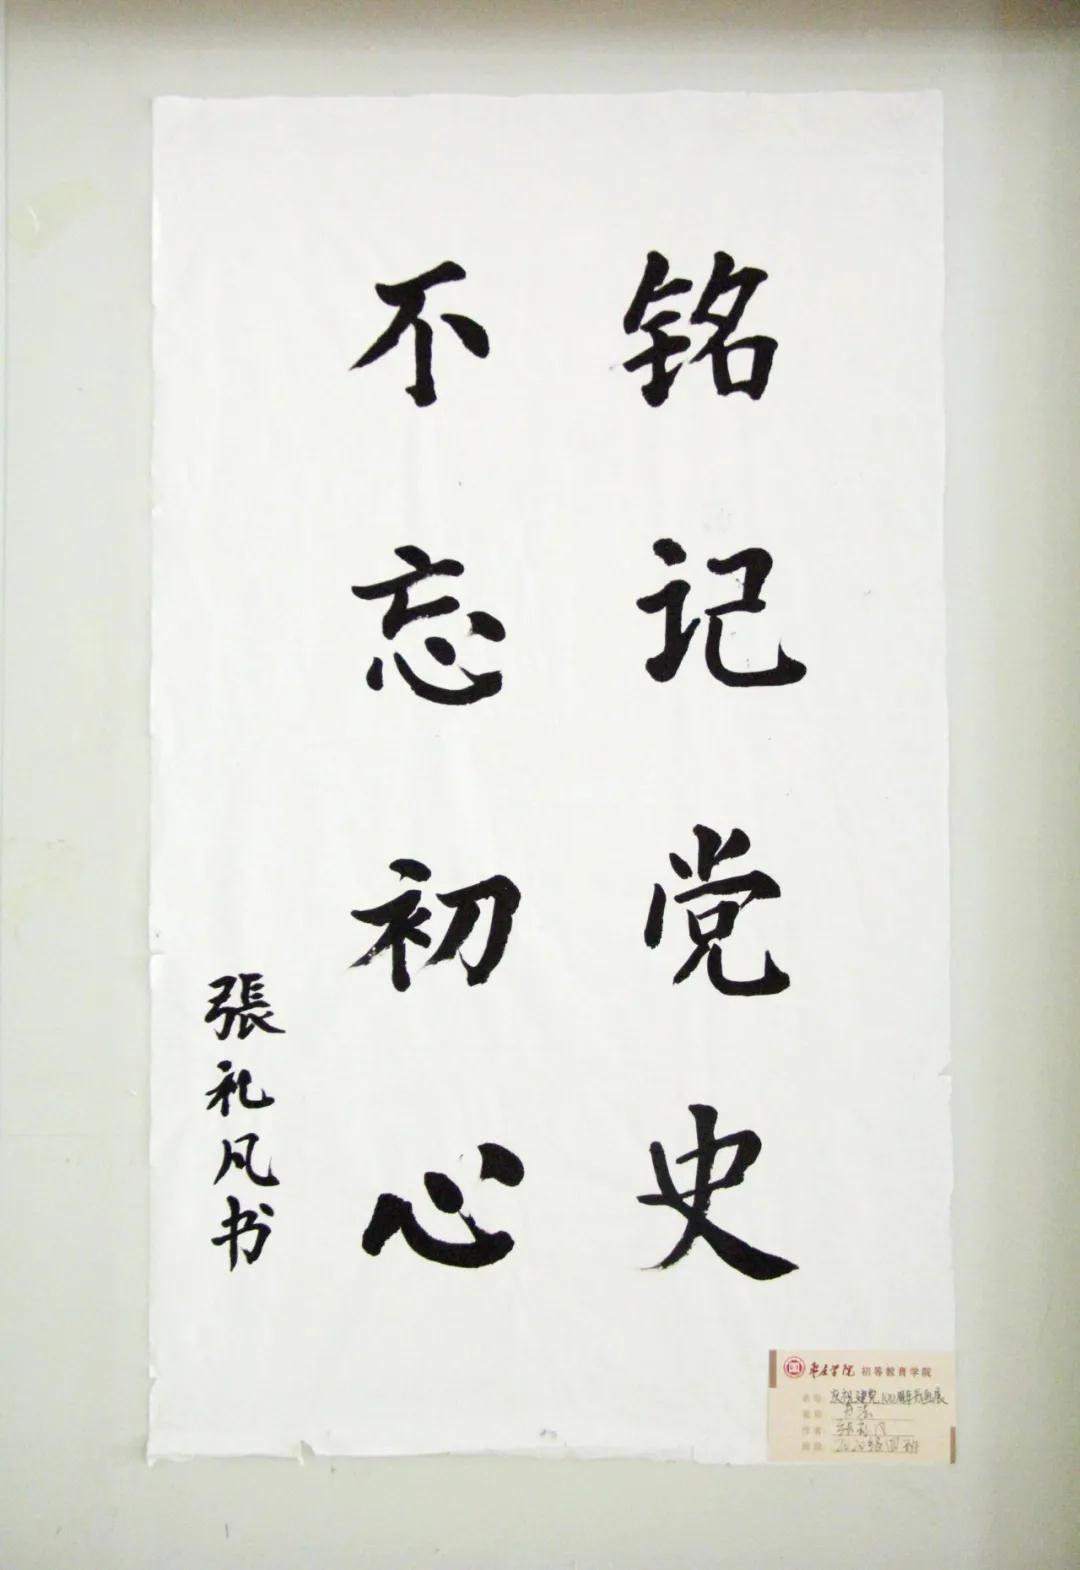 铭记党史
不忘初心
張礼凡书
初等教育学院
名称 庆祝建党100周年书画展
类别 书法
作者 张礼凡
班级 2020级四班